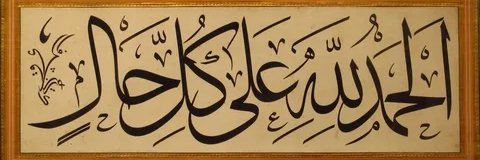 الحَمْدُ لِلّهِ عَلَى كُلِّ حَالٍ